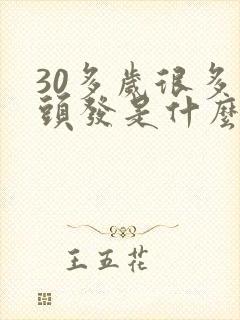 30多歲很多
頭發是什麼
王五花